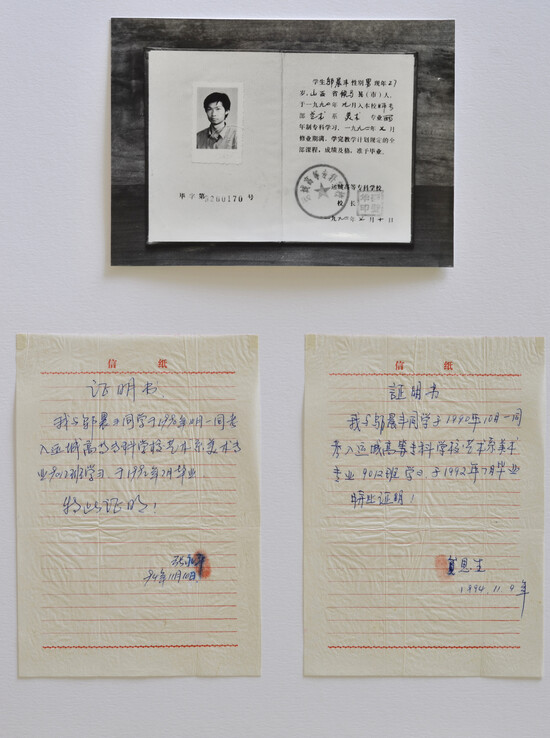 学生邬晨丰性别男现年27
岁,山西省侯马县(市)人,
于一九九〇年九月入本校师专
部艺术系美术专业两
年制专科学习,一九九二年七月
修业期满,学完教学计划规定的全
部课程,成绩及格,准予毕业。
运城高等专科学校
校长
一九九二年七月十日
毕字第9260170号
信纸
证明书
我与邬晨丰同学于1990年10月一同考
入运城高等专科学校艺术系美术专
业9012班学习 于1992年7月毕业
特此证明!
94年11月10日
信纸
証明书
我与邬晨丰同学于1990年10月一同
考入运城高等专科学校艺术系美术
专业9012班学习 于1992年7月毕业
特此证明!
贺思生
1994.11.9年